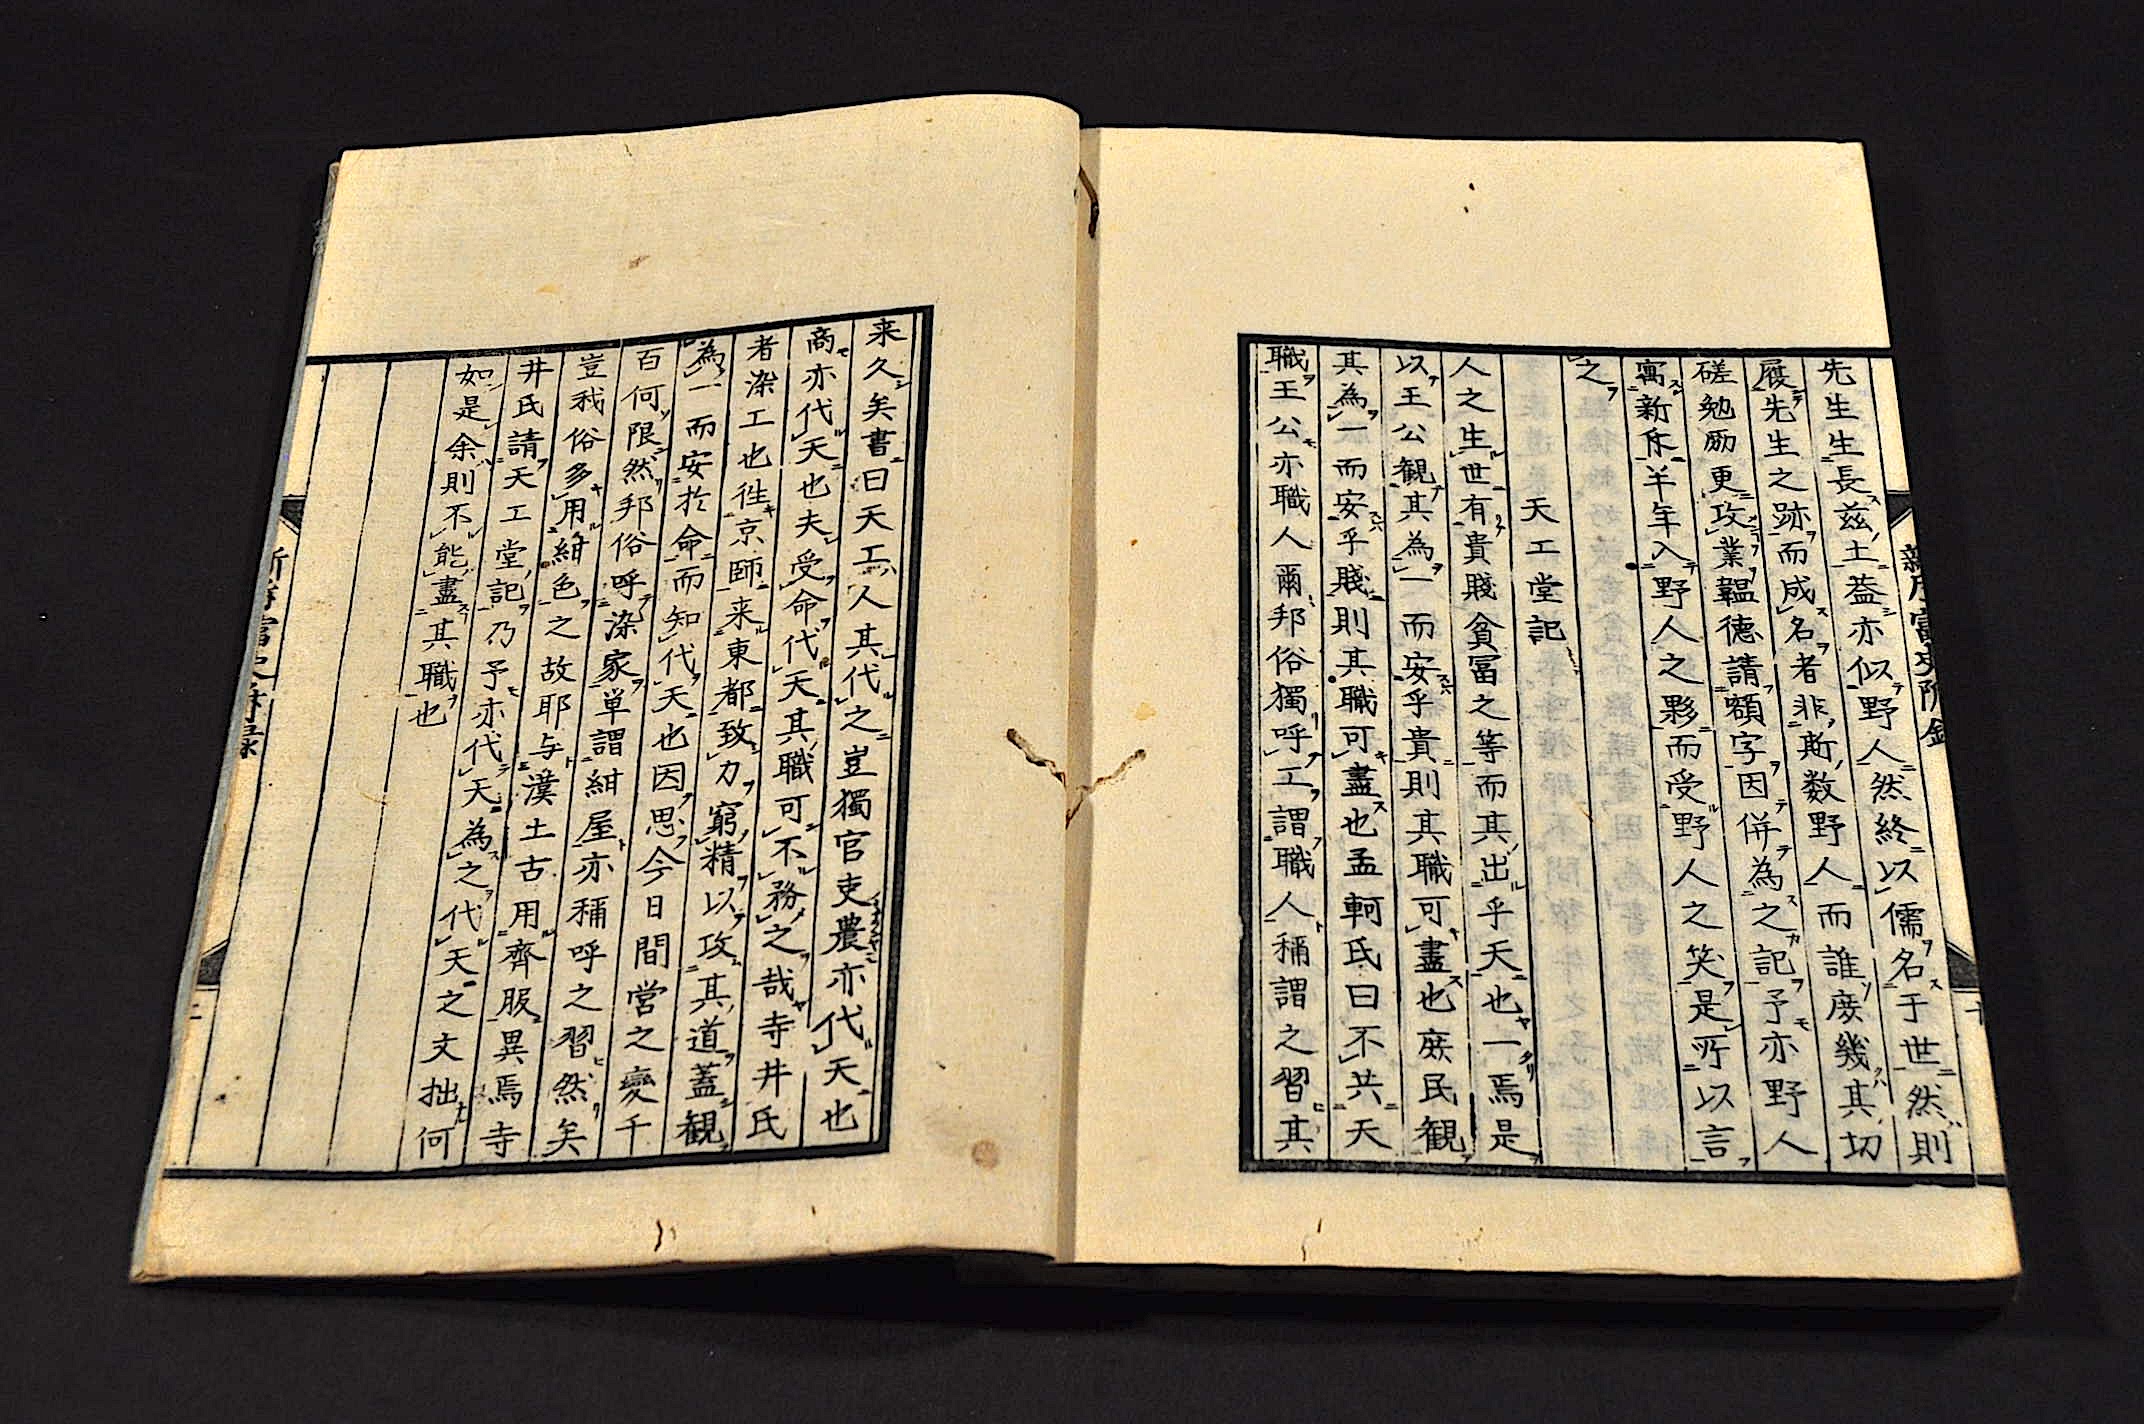 先生生長茲土葢亦似野人然終以儒名于世然則
履先生之跡而成名者非斯数野人而誰庶幾其切
磋勉励更攻業韞德請額字因併為之記予亦野人
寓新半年入野人之夥而受野人之笑是所以言
之
天工堂記
人之生世有貴賤貧冨之等而其出乎天也一焉是
以王公観其為一而安乎貴則其職可盡也庶民観
其為一而安乎賤則其職可盡也孟軻氏曰不共天
職王公亦職人爾邦俗獨呼工謂職人稱謂之習其
来久矣書曰天工人其代之豈獨官吏農亦代天也
商亦代天也夫受命代天其職可不務之哉寺井氏
者染工也徃京師来東都致力窮精以攻其道蓋観
為一而安於命而知代天也因思今日間営之變千
百何限然邦俗呼染家単謂紺屋亦稱呼之習然矣
豈我俗多用紺色之故耶与漢土古用齊服異焉寺
井氏請天工堂記乃予亦代天為之代天之文拙何
如是余則不能盡其職也